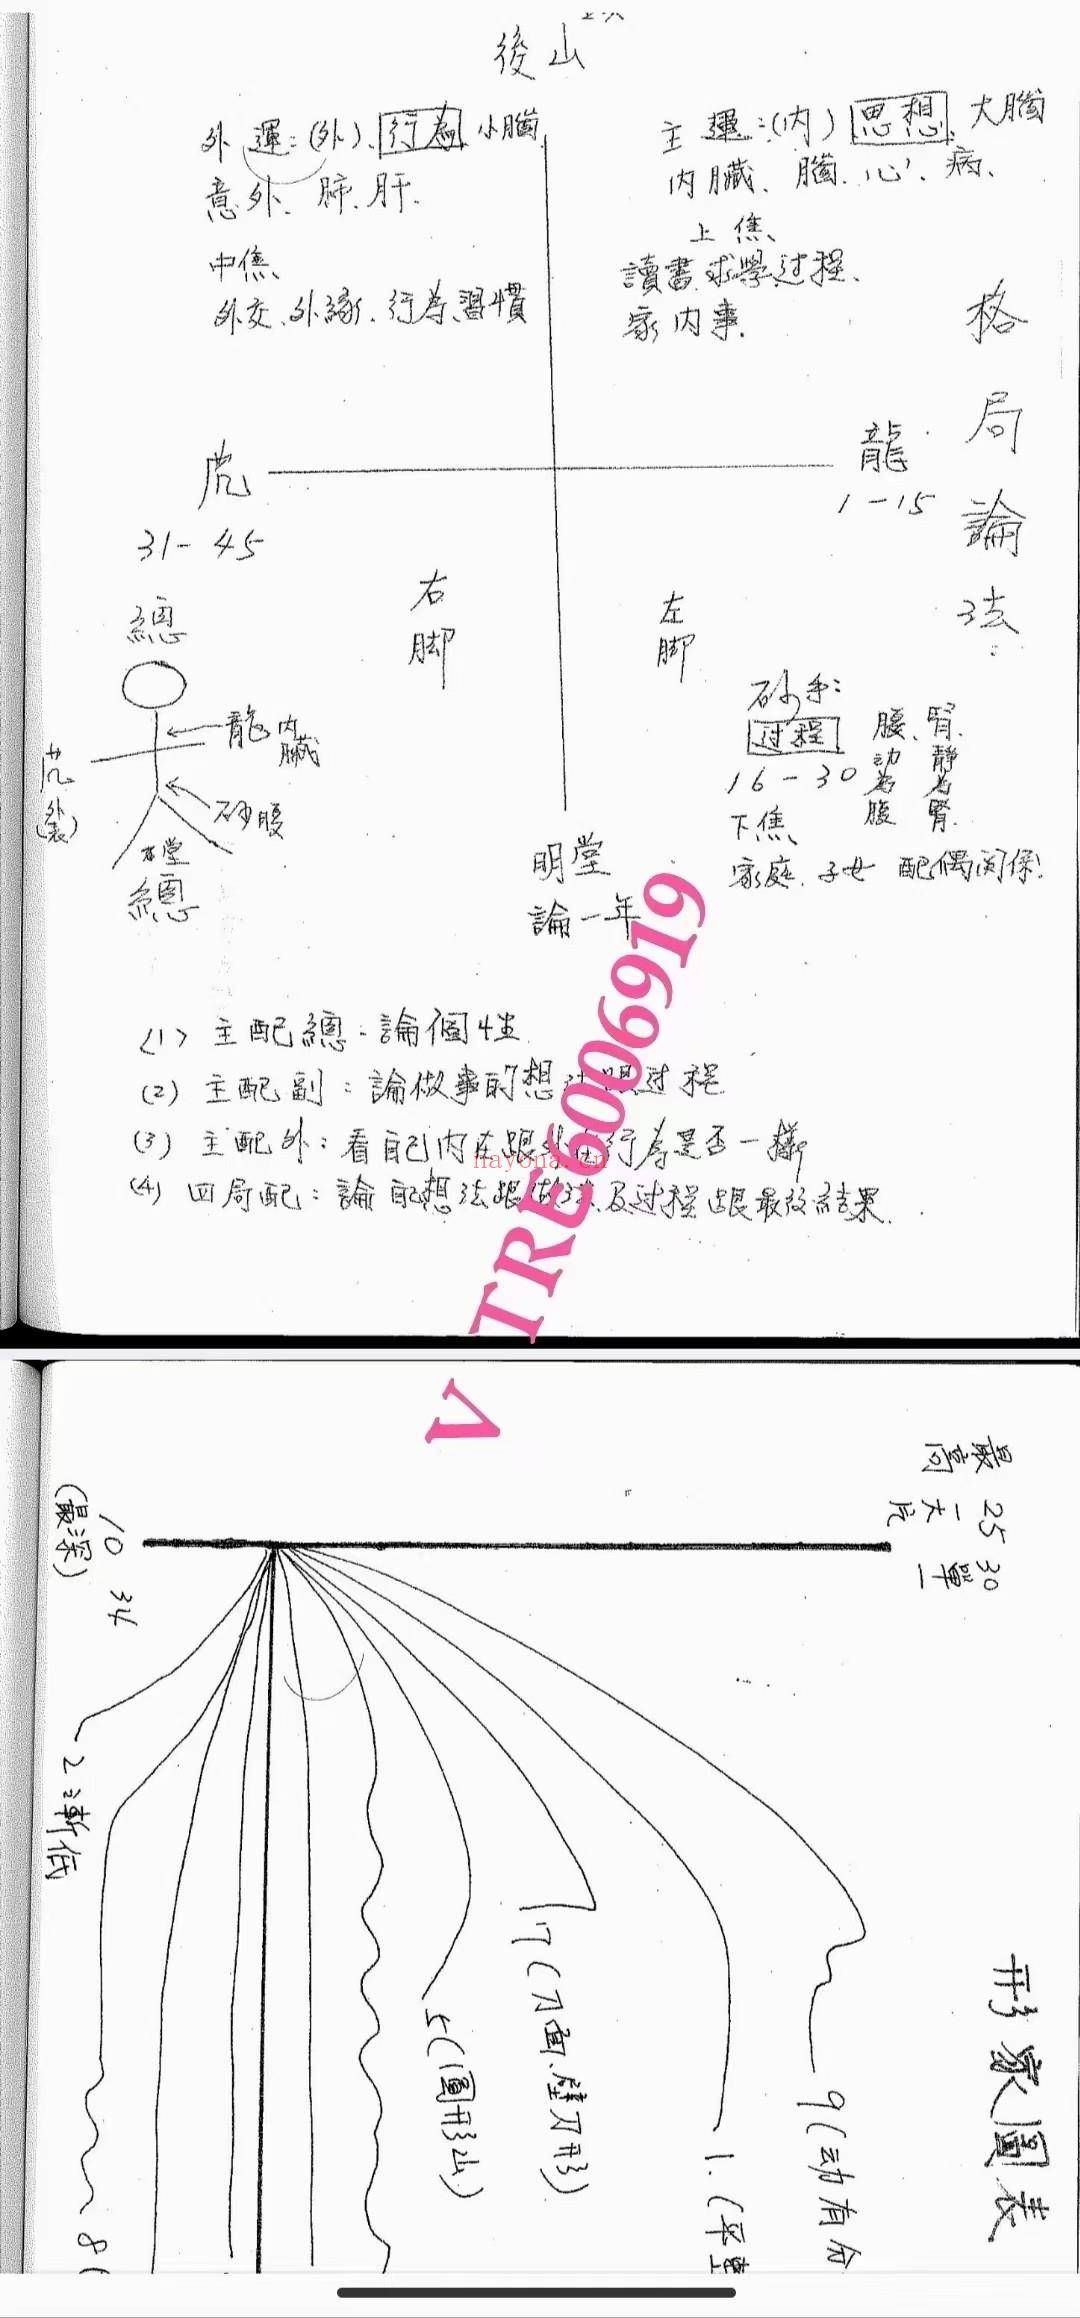 後山
外運：(外)、行為、小腦
意外、肺、肝、
中焦、
外交、外緣、行為、習慣
主運：(內) 思想、大腦
內臟、腦、心、病、
上焦、
讀書、求學过程、
家內事、
格局論法：
龍
1-15
虎
31-45
右脚
左脚
總
龍 內臟
砂腰
虎(外表)
堂
總
砂手：
过程
16-30
下焦、
家庭、子女 配偶関係！
腰、腎、
動為腹
静為腎
明堂
論一年
(1) 主配總：論個性
(2) 主配副：論做事的想法跟过程
(3) 主配外：看自己內在跟外在行為是否一樣
(4) 四局配：論 配想法跟做法及过程跟最後結果.
TRE6006919
nayona.cn
V
最高
25 一大片
30 單一
10
(最深)
34
形家圖表
2：漸低
8(
5(圓形山)
7(刀面、壁刀形)
1.(平
9(动有